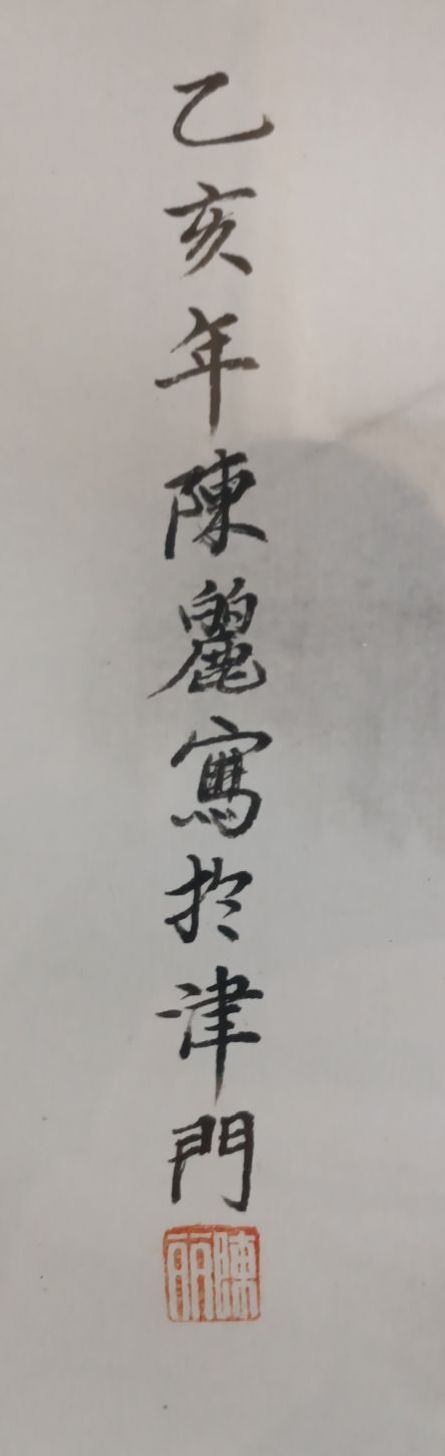 乙亥年陳麗寫於津門
陳丽